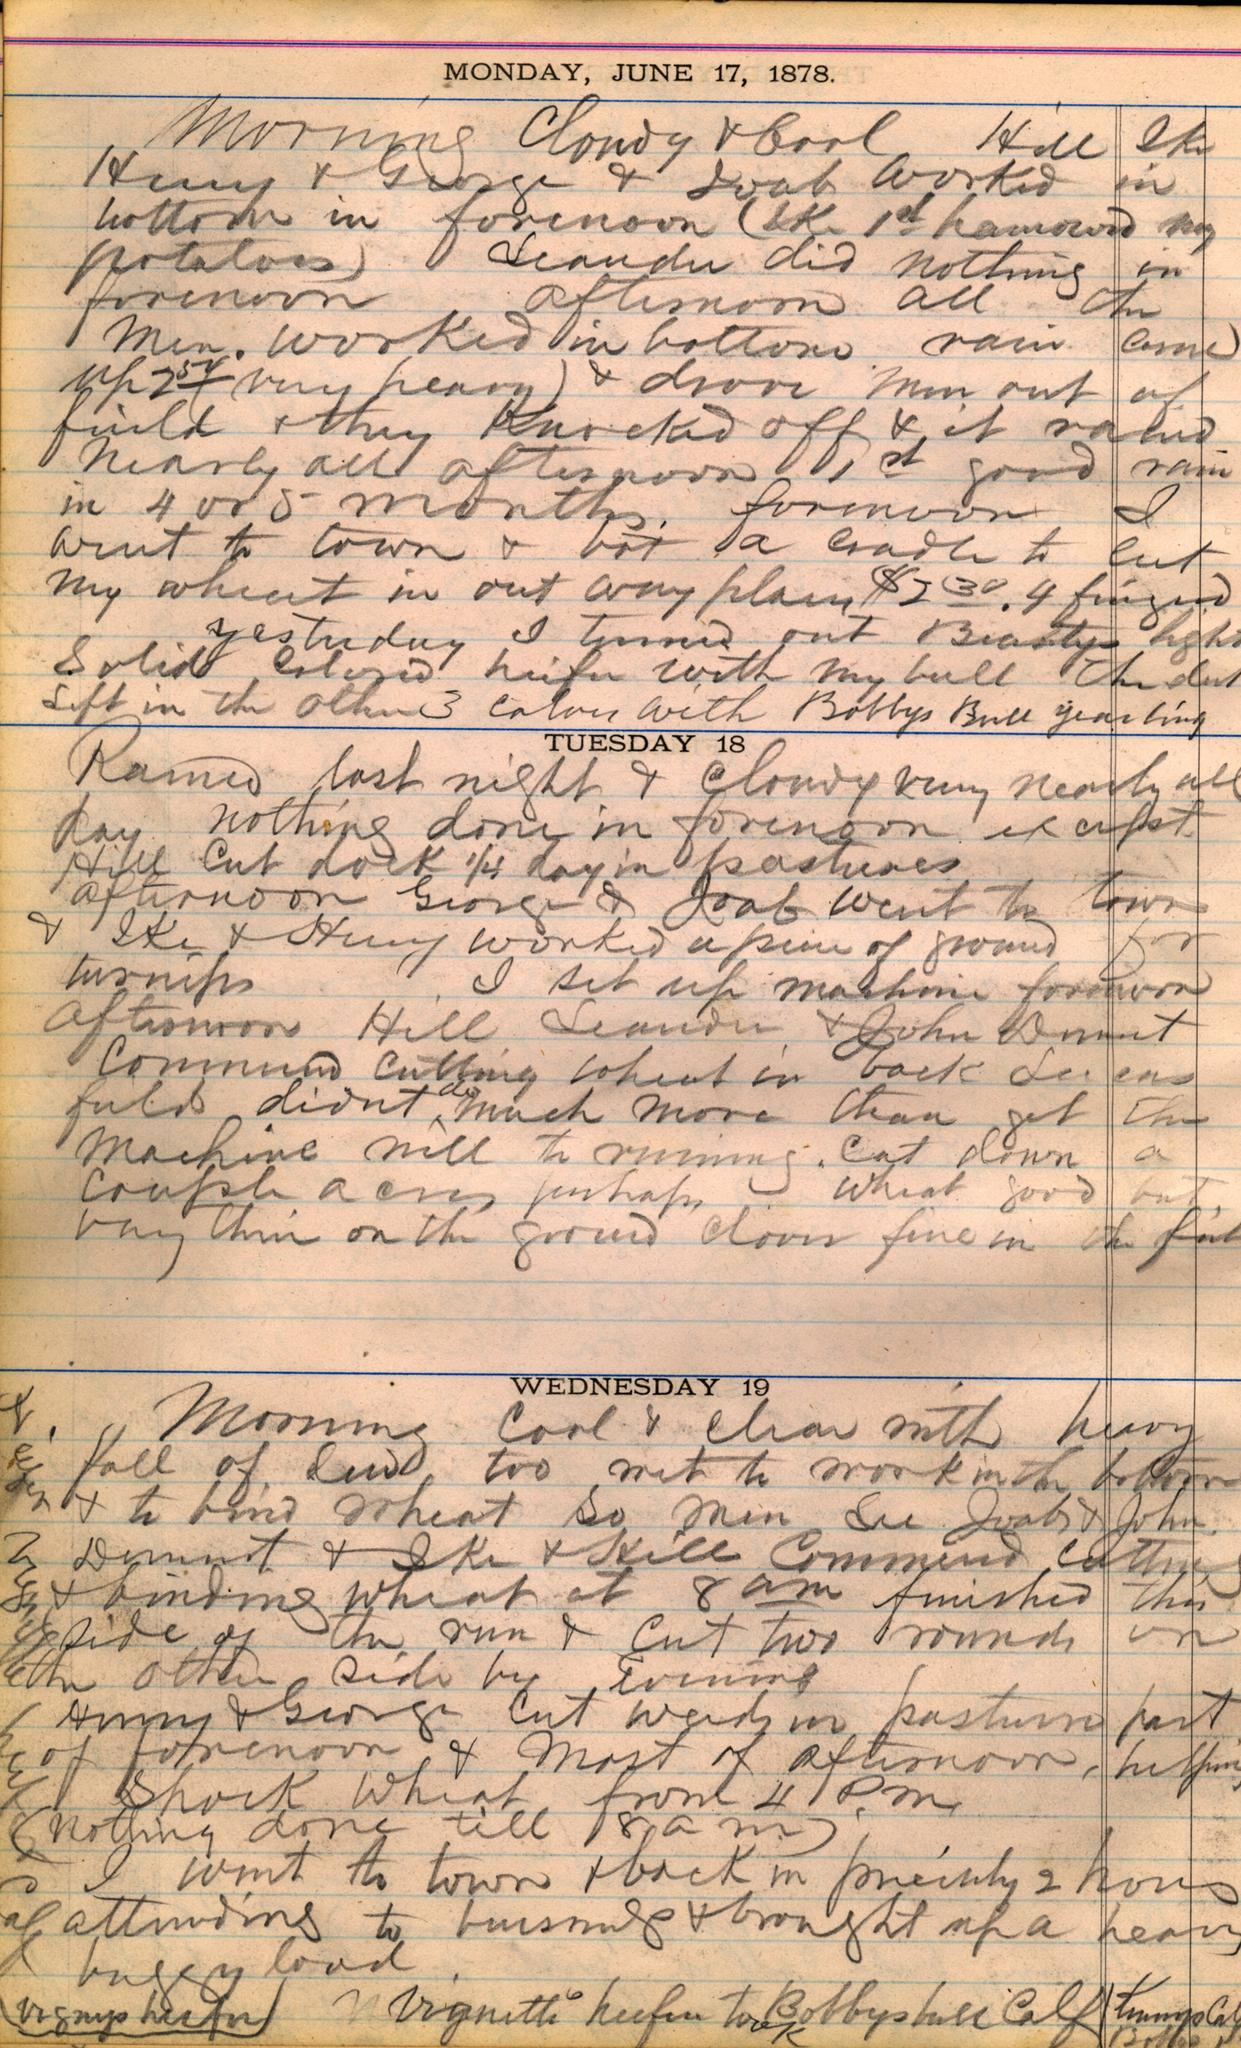 MONDAY, JUNE 17, 1878.
Morning Cloudy & Cool Hill Ike
Henry & George & Joab worked in
bottom in forenoon (Ike 1st harrowed my
potatoes) Leander did nothing in
forenoon afternoon all the
men worked in bottom rain come
up 2 (very heavy) & drove men out of
field & they Knocked off & it rained
nearly all afternoon 1st good rain
in 4 or 5 months. forenoon I
went to town & bot a cradle to cut
my wheat in out way places $2 30. 4 fingered
yesterday I turned out Beautys light
Solid Colored heifer with my bull the
left in the other 3 calves with Bobbys Bull yearling
TUESDAY 18
Rained last night & Cloudy very nearly all
day nothing done in forenoon except
Hill Cut dock 1/4 day in pastures
afternoon George & Joab went to town
& Ike & Henry worked a piece of ground for
turnips I set up machine forenoon
Afternoon Hill Leander & John Demut
Commenced Cutting wheat in back Lucas
field didnt do much more than get the
Machine will to running. Cut down a
Couple acres perhaps wheat good but
very thin on the ground clover fine in the
WEDNESDAY 19
Morning Cool & clear with heavy
fall of dew too wet to work in the bottom
& to bind wheat so men Lee Joab & John
Demut & Ike & Hill Commenced Cutting
& binding wheat at 8 am finished this
side of the run & Cut two rounds on
the other side by Evening
Henry & George Cut weeds in pasture part
of forenoon & Most of afternoon, helping
Shock Wheat from 4 P.m.
(Nothing done till 8 a m)
I went to town & back in precisely 2 hours
attending to buisness & brought up a heavy
buggy load
(Vignys heifer) Vignette heifer took Bobbys bull Calf